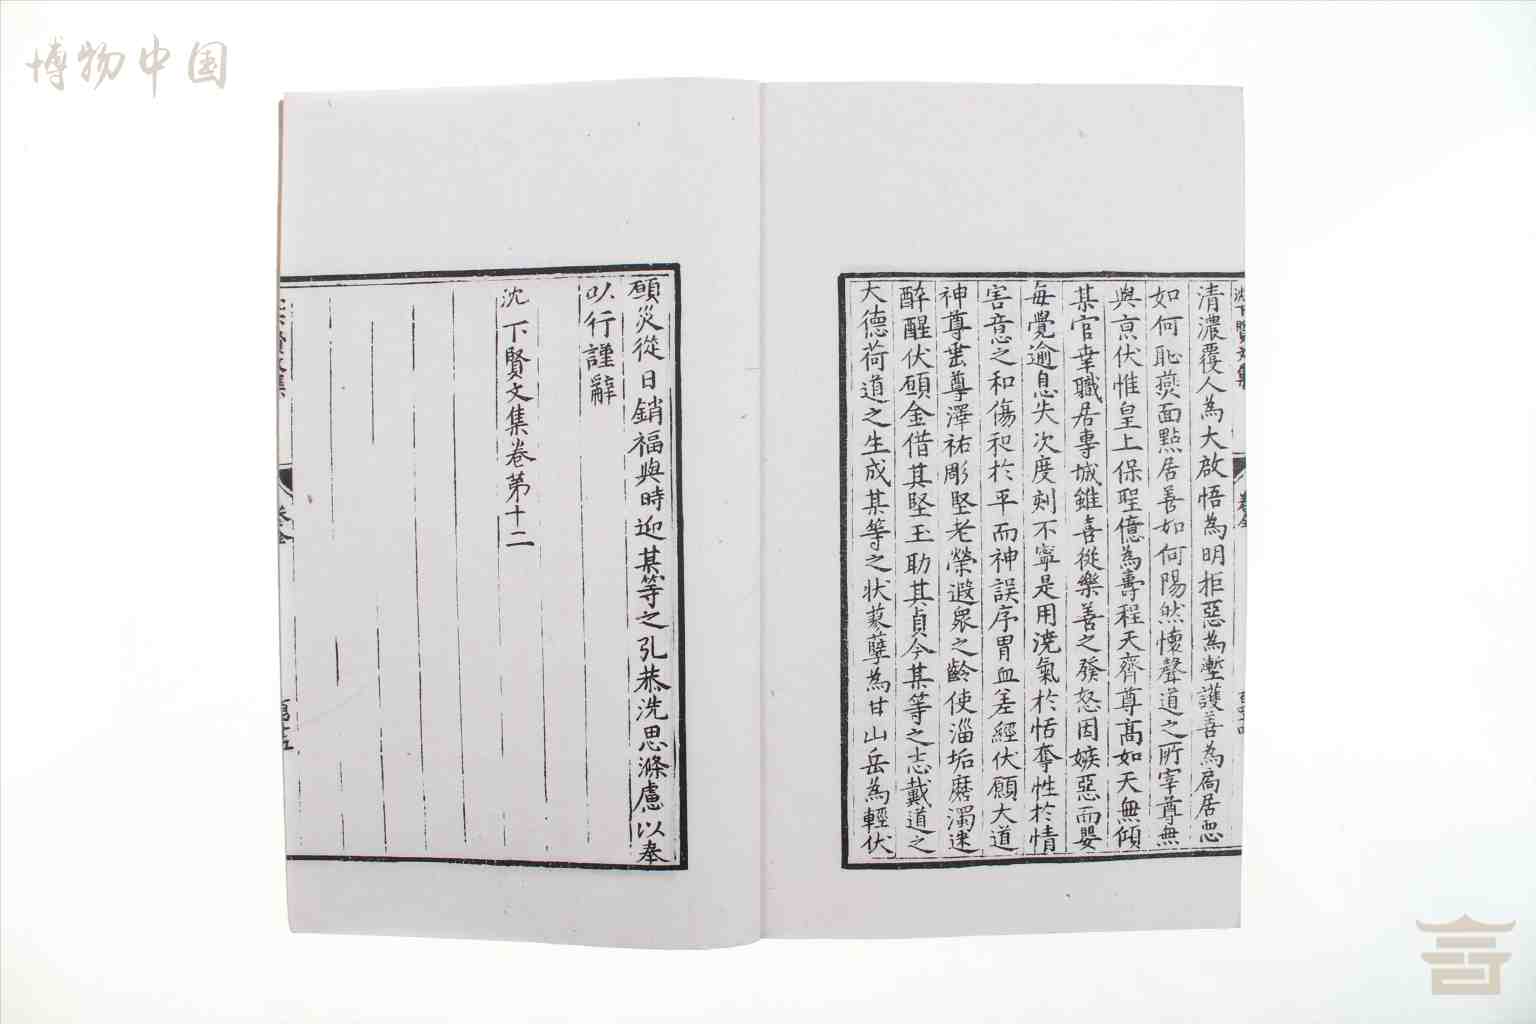 博物中国
清濃覆人為大啟悟為明拒惡為塹護善為扃居忽
如何恥燕面點居善如何陽然懷聲道之所宰尊無
與京伏惟皇上保聖億為壽程天齊尊高如天無傾
某官幸職居專城雖喜從樂善之發怒因嫉惡而嬰
每覺逾息失次度刻不寧是用澆氣於恬奪性於情
害意之和傷和於平而神誤序胃血差經伏願大道
神尊雲尊澤祐彫堅老榮遐衆之齡使淄垢磨濁逮
醉醒伏願金借其堅玉助其貞今某等之志戴道之
大德荷道之生成某等之状蔘孽為甘山岳為輕伏
願災從日銷福與時迎某等之孔恭洗思滌慮以奉
以行謹辭
沈下賢文集卷第十二